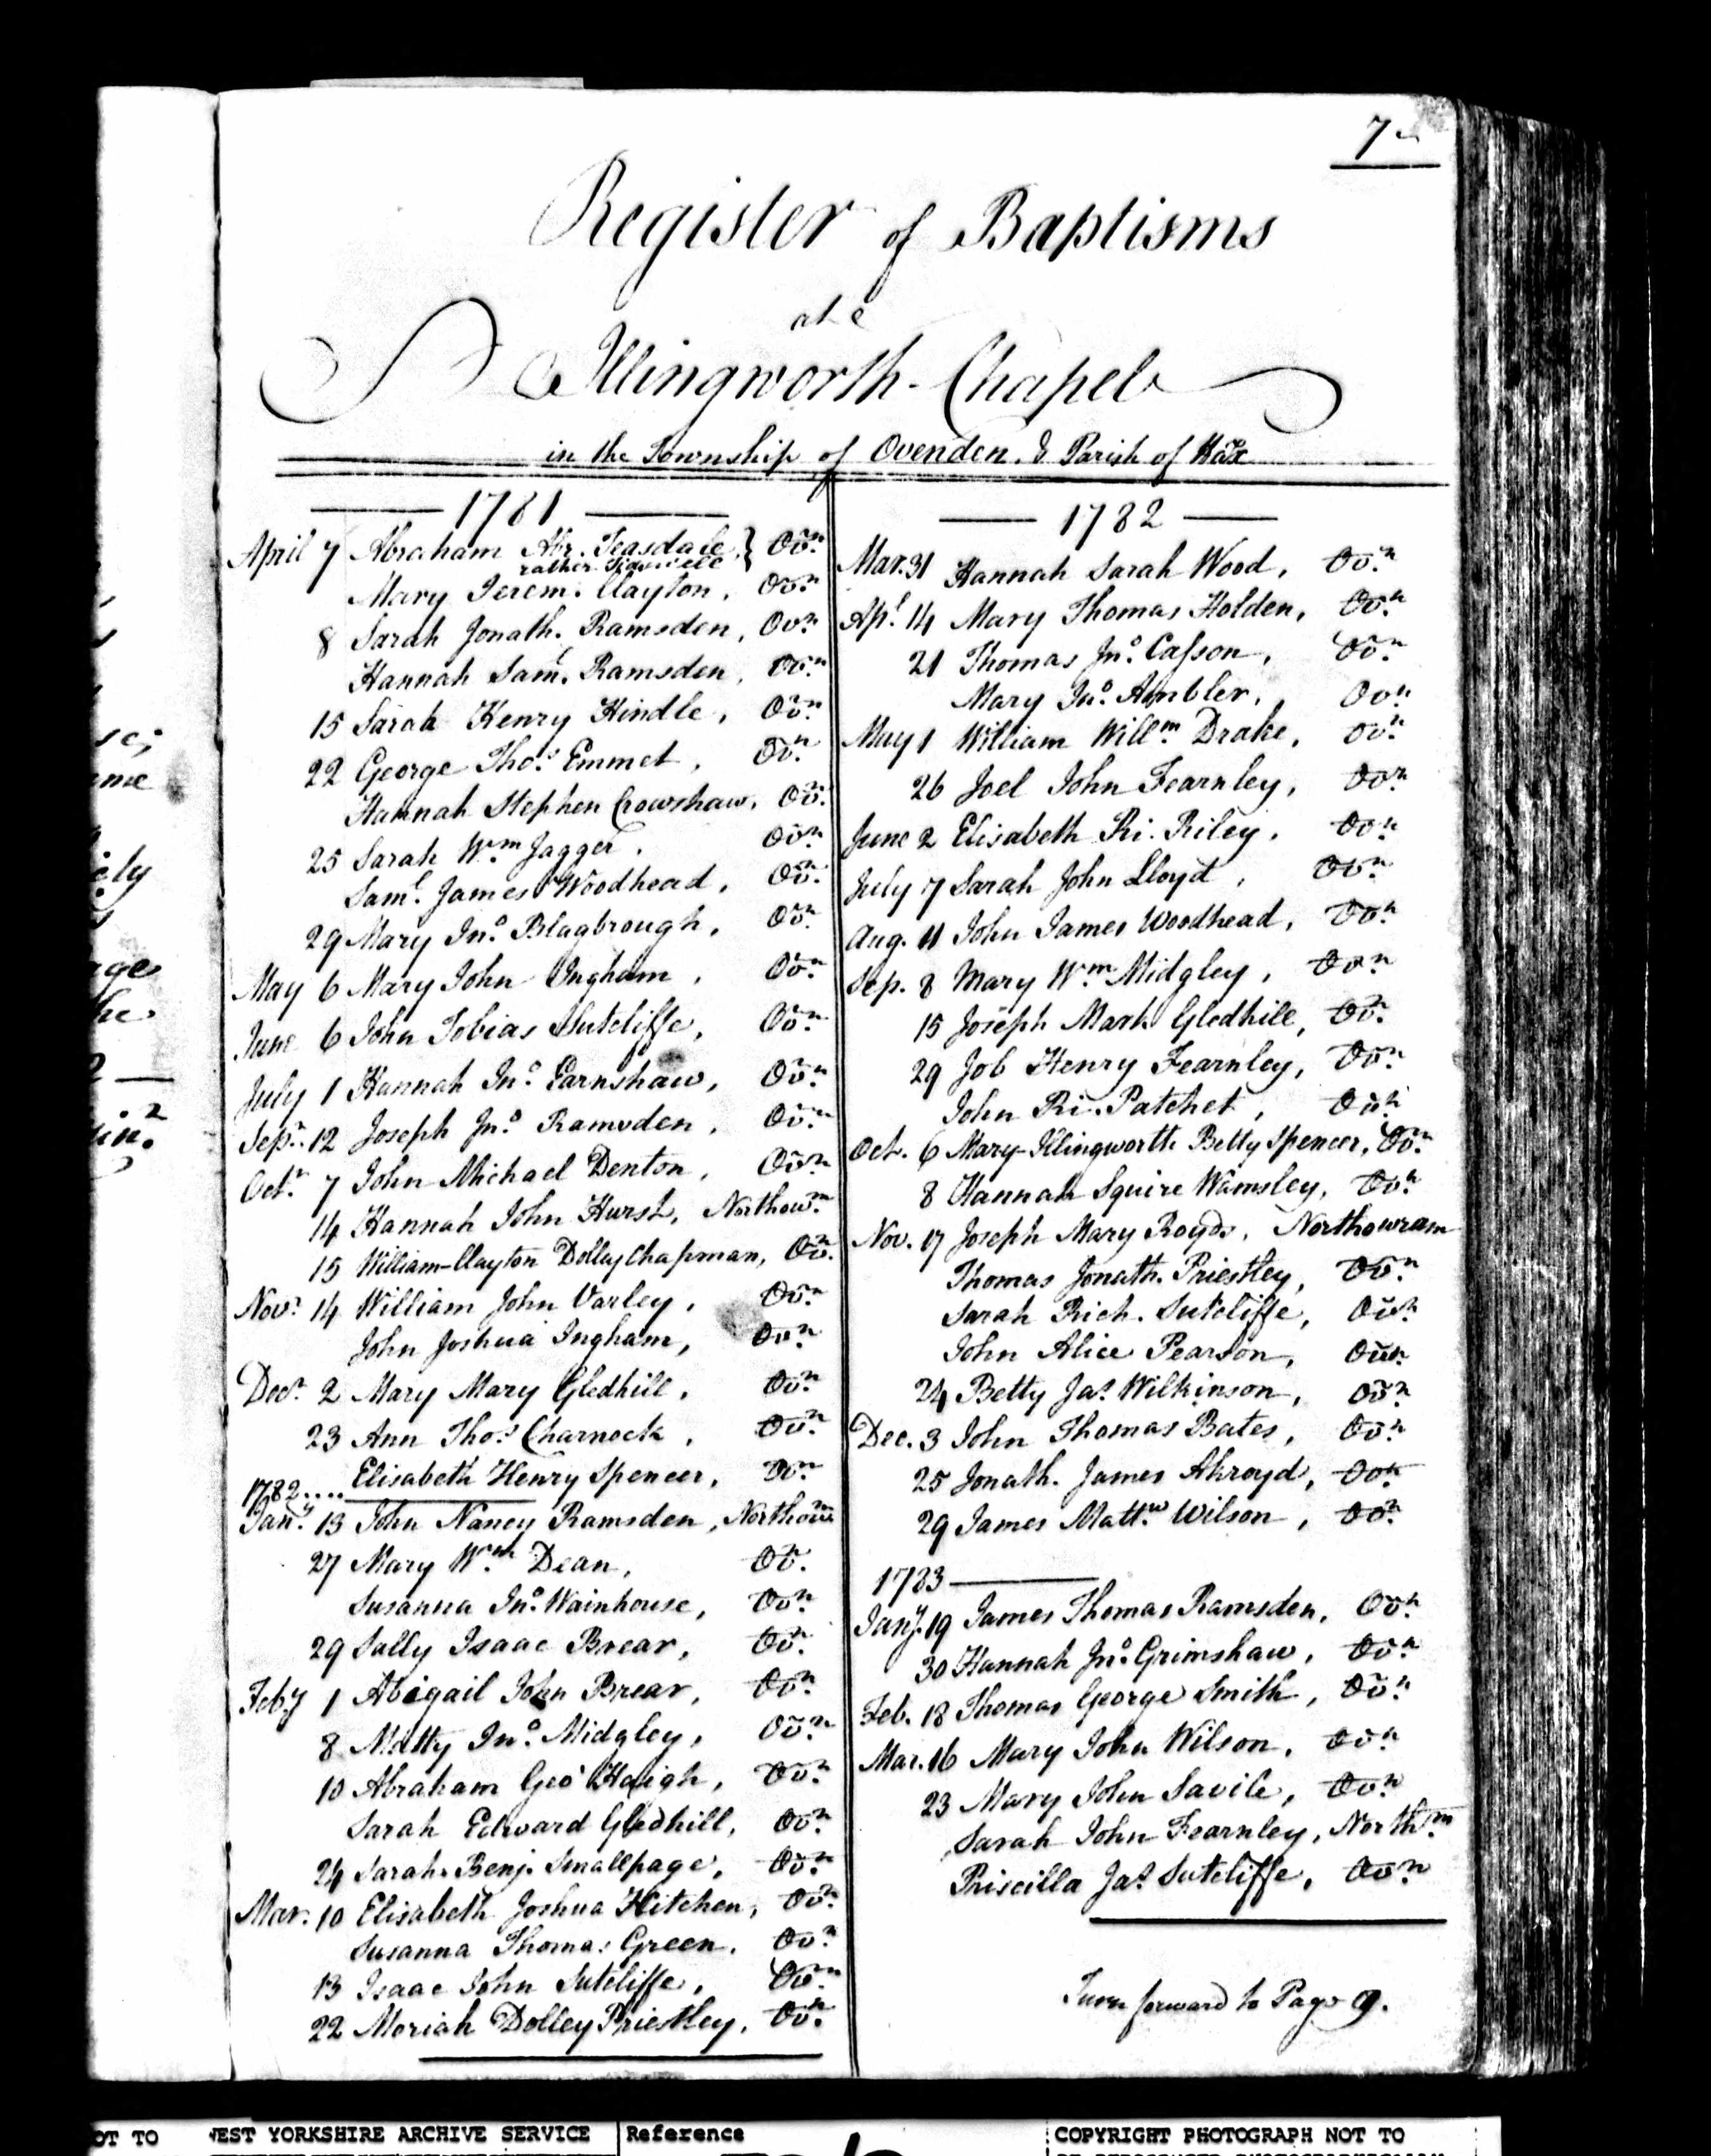 7
Register of Baptisms
at
Illingworth Chapel
in the Township of Ovenden, & Parish of Hax
1781
April 7 Abraham Abr. Teasdale, } Ovn
rather
Mary Jerem. Clayton, Ovn
8 Sarah Jonath. Ramsden, Ovn
Hannah Saml. Ramsden, Ovn
15 Sarah Henry Hindle, Ovn
22 George Thos. Emmet, Ovn
Hannah Stephen Crowshaw, Ovn
25 Sarah Wm Jagger, Ovn
Saml. James Woodhead, Ovn
29 Mary Jno. Blagbrough, Ovn
May 6 Mary John Ingham, Ovn
June 6 John Tobias Sutcliffe, Ovn
July 1 Hannah Jno. Earnshaw, Ovn
Sepr. 12 Joseph Jno. Ramsden, Ovn
Octr. 7 John Michael Denton, Ovn
14 Hannah John Hurst, Northowm
15 William-Clayton Dolly Chapman, Ovn
Novr. 14 William John Varley, Ovn
John Joshua Ingham, Ovn
Decr. 2 Mary Mary Gledhill, Ovn
23 Ann Thos. Charnock, Ovn
Elisabeth Henry Spencer, Ovn
1782....
Jany. 13 John Nancy Ramsden, Northowm
27 Mary Wm Dean, Ov.
Susanna Jno. Wainhouse, Ovn
29 Sally Isaac Brear, Ovn
Feby 1 Abigail John Brear, Ovn
8 Matty Jno. Midgley, Ovn
10 Abraham Geo Haigh, Ovn
Sarah Edward Gledhill, Ovn
24 Sarah Benj. Smallpage, Ovn
Mar. 10 Elisabeth Joshua Hitchen, Ovn
Susanna Thomas Green, Ovn
13 Isaac John Sutcliffe, Ovn
22 Moriah Dolley Priestley, Ovn
1782
Mar. 31 Hannah Sarah Wood, Ovn
Apl. 14 Mary Thomas Holden, Ovn
21 Thomas Jno. Casson, Ovn
Mary Jno. Ambler, Ovn
May 1 William Willm. Drake, Ovn
26 Joel John Fearnley, Ovn
June 2 Elisabeth Ri. Riley, Ovn
July 7 Sarah John Lloyd, Ovn
Aug. 11 John James Woodhead, Ovn
Sep. 8 Mary Wm Midgley, Ovn
15 Joseph Mark Gledhill, Ovn
29 Job Henry Fearnley, Ovn
John Ri. Patchet, Ovn
Oct. 6 Mary-Illingworth Betty Spencer, Ovn
8 Hannah Squire Wamsley, Ovn
Nov. 17 Joseph Mary Royds, Northowram
Thomas Jonath. Priestley, Ovn
Sarah Rich. Sutcliffe, Ovn
John Alice Pearson, Ovn
24 Betty Jas. Wilkinson, Ovn
Dec. 3 John Thomas Bates, Ovn
25 Jonath. James Akroyd, Ovn
29 James Mattw. Wilson, Ovn
1783
Jany. 19 James Thomas Ramsden, Ovn
30 Hannah Jno. Grimshaw, Ovn
Feb. 18 Thomas George Smith, Ovn
Mar. 16 Mary John Wilson, Ovn
23 Mary John Savile, Ovn
Sarah John Fearnley, Northm
Priscilla Jas. Sutcliffe, Ovn
Turn forward to Page 9.
OT TO
WEST YORKSHIRE ARCHIVE SERVICE
Reference
COPYRIGHT PHOTOGRAPH NOT TO